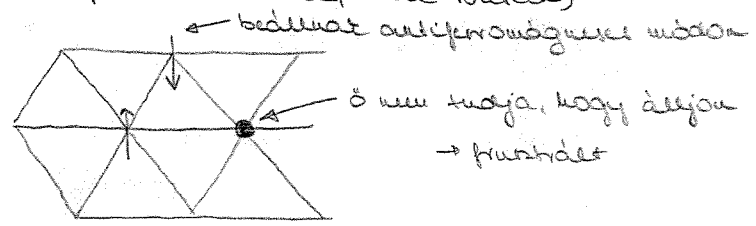 beállnak antiferromágneses módon
ő nem tudja, hogy álljon
→ frusztrált